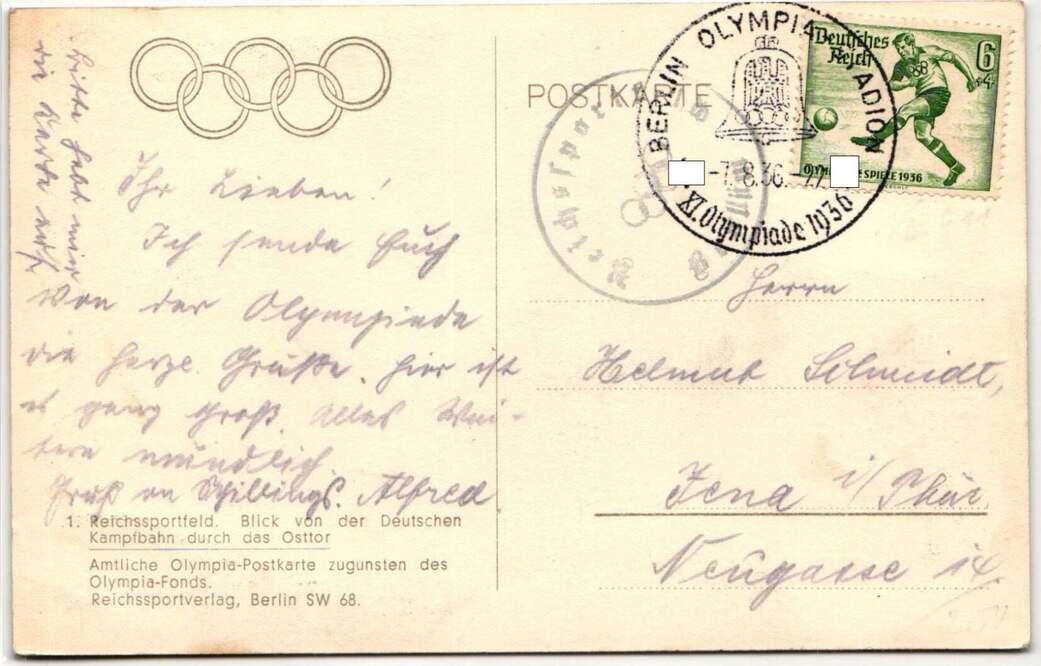 Bitte hebt mir
die Karte auf.
Ihr Lieben!
Ich sende Euch
von der Olympiade
die herzl. Grüße. Hier ist
es ganz groß. Alles Wei-
tere mündlich.
Gruß an Schillings. Alfred
1. Reichssportfeld. Blick von der Deutschen
Kampfbahn durch das Osttor
Amtliche Olympia-Postkarte zugunsten des
Olympia-Fonds.
Reichssportverlag, Berlin SW 68.
POSTKARTE
BERLIN OLYMPIA-STADION
-7.8.36.
XI. Olympiade 1936
Deutsches
Reich
6
+4
OLYMPISCHE SPIELE 1936
Herrn
Helmut Schmidt,
Jena i/Thür.
Neugasse